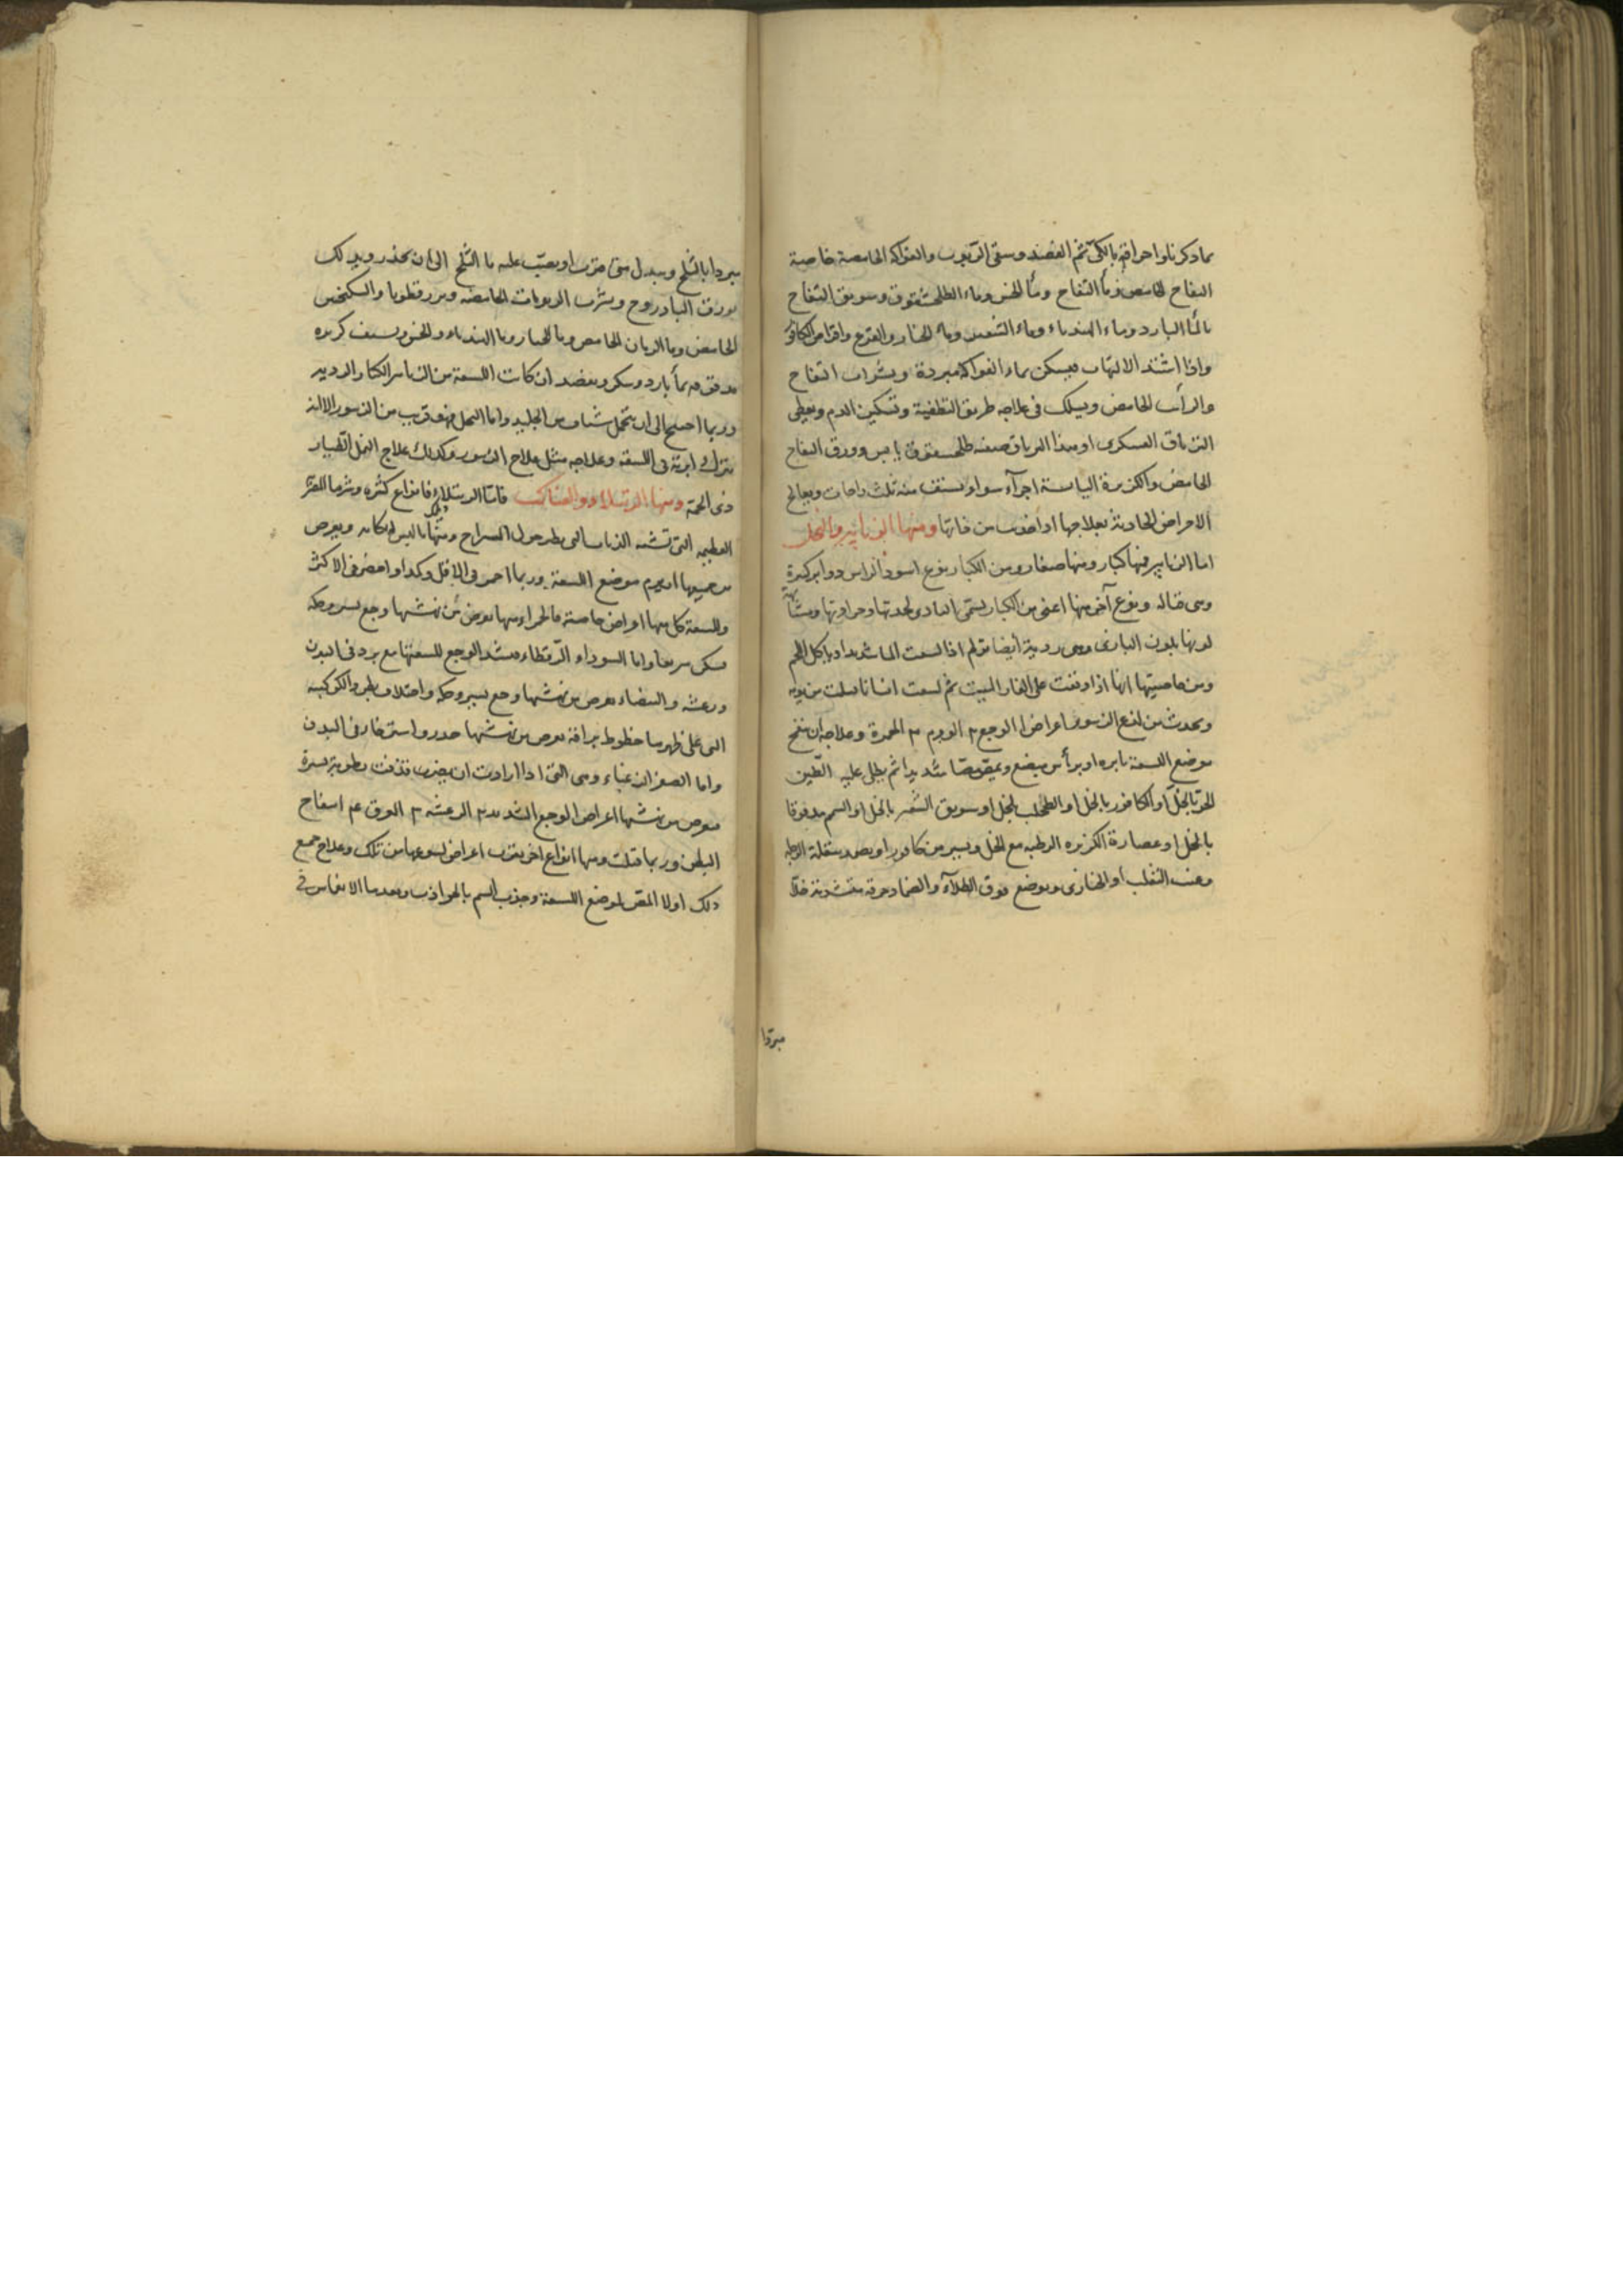 بما ذكرناه او احراقه بالكي ثم الفصد وسقي الربوب والفواكه الحامضة خاصة
التفاح الحامض وماء التفاح وماء الخس وماء الطلحشقوق وسويق التفاح
بالماء البارد وماء الهندباء وماء الشعير وماء الخيار والقرع واقراص الكافور
واذا اشتد الالتهاب فيسكن بماء الفواكه مبردة وبشراب التفاح
والرائب الحامض ويسلك في علاجه طريق التطفية وتسكين الدم ويعطى
الترياق العسكري او هذا الترياق صفته طلحشقوق يابس وورق التفاح
الحامض والكزبرة اليابسة اجزآء سواء يستف منه ثلث راحات ويعالج
الاعراض الحادثة بعلاجها اذا خيف من فانها ومنها الزنابير والنحل
اما الزنابير فمنها كبار ومنها صغار ومن الكبار نوع اسود الراس ذو ابر كبيرة
وهي قتاله ونوع آخر منها اعني من الكبار يسمى البادي لحدتها وحرارتها ومشابهة
لونها بلون البازي وهي ردية ايضا تؤلم اذا لسعت الما شديدا وياكل اللحم
ومن خاصيتها انها اذا وقعت على الفار الميت ثم لسعت انسانا قتلت من يومه
ويحدث من لذع الزنبور اعراض ا الوجع ٢ الورم ٣ الحمرة وعلاجه ان يفتح
موضع اللسعة بابره او براس مبضع ويمص مصا شديدا ثم يطلى عليه الطين
الحر بالخل او الكافور بالخل او الطحلب بالخل او سويق الشعير بالخل او السمسم مدقوقا
بالخل او عصارة الكزبره الرطبه مع الخل ويسير من كافور او يضمد ببقلة الرجلة
وعنب الثعلب او الخبازى ويوضع فوق الطلآء والضماد خرقة مغموسة خلا
مبردا
مبردا بالثلج ويبدل متى فترت او يصب عليه ماء الثلج الى ان يخدر ويدلك
بورق الباذروج ويشرب الربوبات الحامضه وبزرقطونا والسكنجبين
الحامض وماء الرمان الحامض وماء الخيار وماء الهندباء والخس ويستف كزبره
مدقوقه بماء بارد وسكر ويفصد ان كانت اللسعة من الزنابير الكبار الرديه
وربما احتيج الى ان يتحمل شياف من الجليد واما النحل فهو قريب من الزنبور الا انه
يترك ابرته في اللسعة وعلاجه مثل علاج الزنبور وكذلك علاج النمل الطيار
ذي الحمة ومنها الرتيلاء والعناكب فاما الرتيلاء فانواع كثيره وشرها المصرية
العظيمه التي تشبه الذباب التي يطير حول السراج ومنها ما ليس له مكانه ويعرض
من جميعها ان يرم موضع اللسعة وربما احمر في الاقل وكمد او اخضر في الاكثر
وللسعة كل منها اعراض خاصة فالحمراء منها يعرض من نهشها وجع يسير وحكه
فيسكن سريعا واما السوداء الرقطاء فيشتد الوجع للسعتها مع برد في البدن
ورعشه والبيضاء يعرض من نهشها وجع يسير وحكه واختلاف بطن والكوكبيه
التي على ظهرها خطوط براقة يعرض من نهشها خدر واسترخاء في البدن
واما الصفراء الزغباء وهي التي اذا ارادت ان يضرب قذفت رطوبة يسيرة
فيعرض من نهشها اعراض ا الوجع الشديد ٢ الرعشه ٣ العرق ٤ انتفاخ
البطن وربما قتلت ومنها انواع اخر يقرب اعراض لسوعها من تلك وعلاج جميع
ذلك اولا المص لموضع اللسعة وجذب السم بالجواذب وبعدها الانغماس في